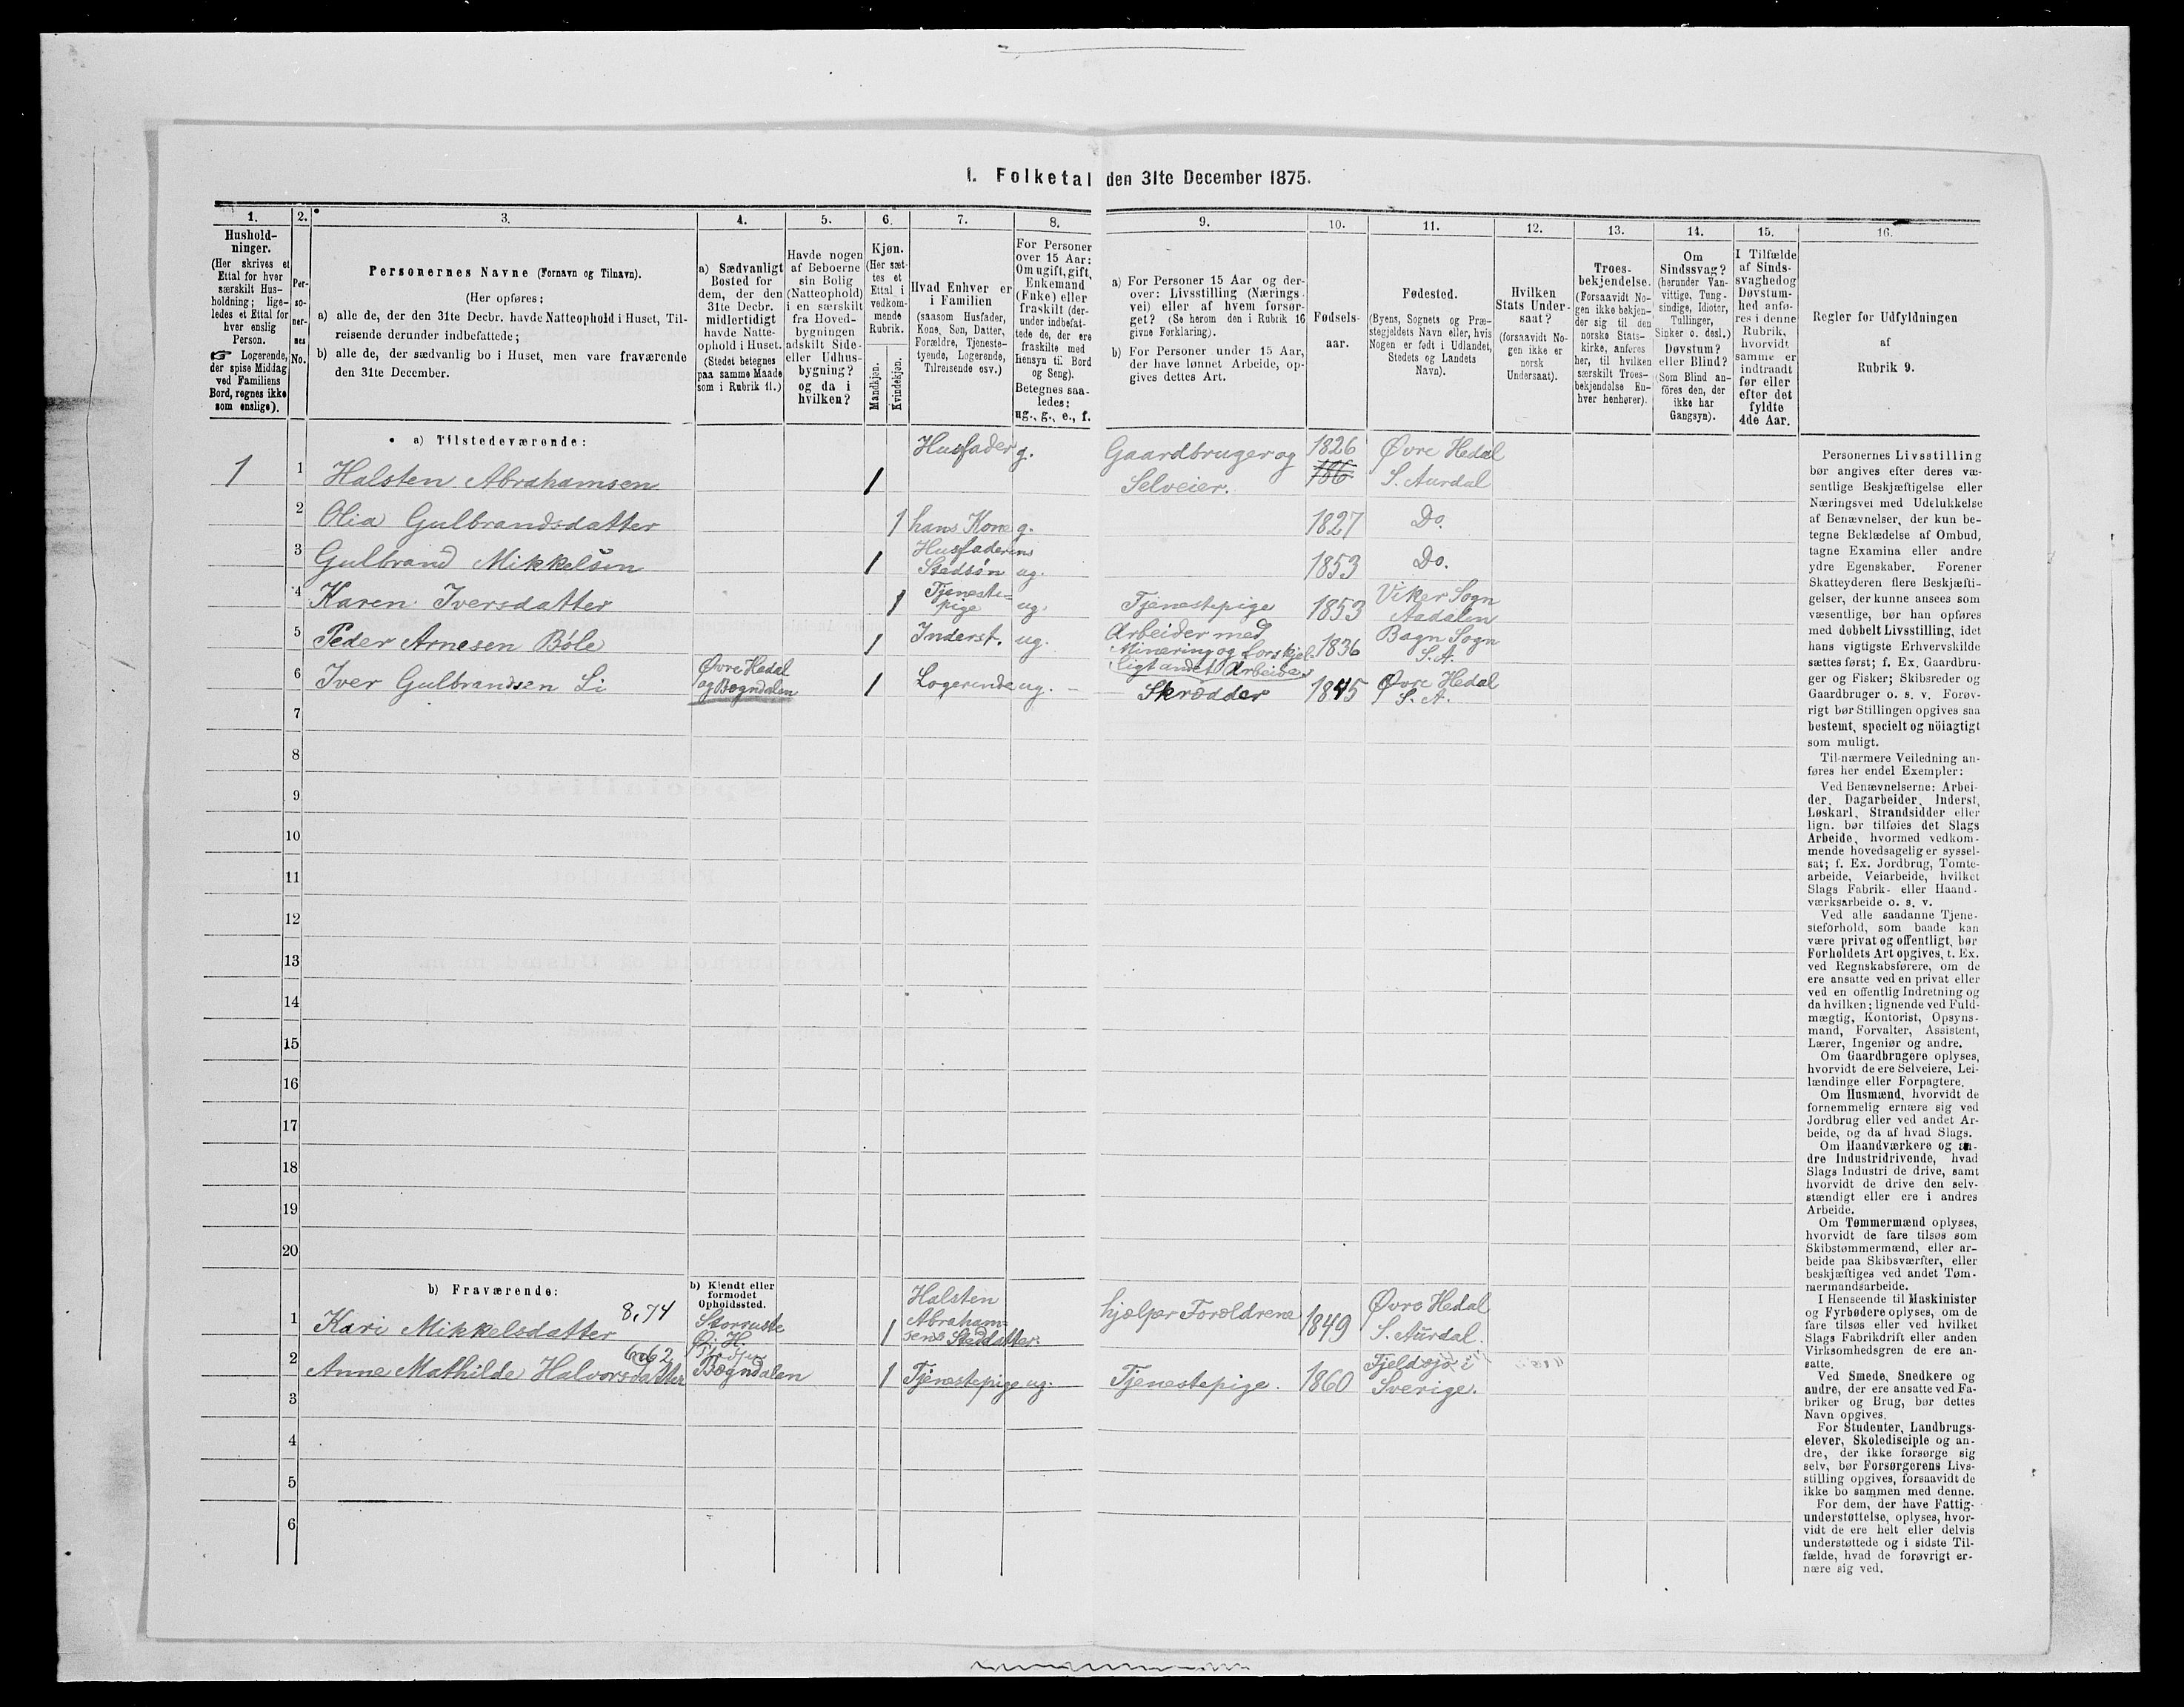 1. Folketal den 31te December 1875.
1.
2.
3.
4.
5.
6.
7.
8.
9.
10.
11.
12.
13.
14.
15.
16.
Hushold-
ninger.
(Her skrives et
Ettal for hver
særskilt Hus-
holdning; lige-
ledes et Ettal for
hver enslig
Person.
☞ Logerende,
der spise Middag
ved Familiens
Bord, regnes ikke
som enslige).
Per-
so-
ner-
nes
No.
Personernes Navne (Fornavn og Tilnavn).
(Her opføres:
a) alle de, der den 31te Decbr. havde Natteophold i Huset, Til-
reisende derunder indbefattede;
b) alle de, der sædvanlig bo i Huset, men vare fraværende
den 31te December.
a) Sædvanligt
Bosted for
dem, der den
31te Decbr.
midlertidigt
havde Natte-
ophold i Huset.
(Stedet betegnes
paa samme Maade
som i Rubrik 11.)
Havde nogen
af Beboerne
sin Bolig
(Natteophold)
i en særskilt
fra Hoved-
bygningen
adskilt Side-
eller Udhus-
bygning?
og da i
hvilken?
Kjøn.
(Her sæt-
tes et
Ettal i
vedkom-
mende
Rubrik.
Mandkjøn.
Kvindekjøn.
Hvad Enhver er
i Familien
(saasom Husfader,
Kone, Søn, Datter,
Forældre, Tjeneste-
tyende, Logerende,
Tilreisende osv.)
For Personer
over 15 Aar:
Om ugift, gift,
Enkemand
(Enke) eller
fraskilt (der-
under indbefat-
tede de, der ere
fraskilte med
Hensyn til Bord
og Seng).
Betegnes saa-
ledes:
ug., g., e., f.
a) For Personer 15 Aar og der-
over: Livsstilling (Nærings-
vei) eller af hvem forsør-
get? (Se herom den i Rubrik 16
givne Forklaring).
b) For Personer under 15 Aar,
der have lønnet Arbeide, op-
gives dettes Art.
Fødsels-
aar.
Fødested.
(Byens, Sognets og Præ-
stegjeldets Navn eller, hvis
Nogen er født i Udlandet,
Stedets og Landets
Navn).
Hvilken
Stats Under-
saat?
(forsaavidt No-
gen ikke er
norsk
Undersaat).
Troes-
bekjendelse.
(Forsaavidt No-
gen ikke bekjen-
der sig til den
norske Stats-
kirke, anføres
her, til hvilken
særskilt Troes-
bekjendelse En-
hver henhører).
Om
Sindssvag?
(herunder Van-
vittige, Tung-
sindige, Idioter,
Tullinger,
Sinker o. desl.)
Døvstum?
eller Blind?
(Som Blind an-
føres den, der
ikke har
Gangsyn).
I Tilfælde
af Sinds-
svaghed og
Døvstum-
hed anfø-
res i denne
Rubrik,
hvorvidt
samme er
indtraadt
før eller
efter det
fyldte
4de Aar.
Regler for Udfyldningen
af
Rubrik 9.
a) Tilstedeværende:
1 1 Halsten Abrahamsen 1 Husfader g. Gaardbruger og Selveier. 1826 186 Øvre Hedal S. Aurdal
2 Olia Gulbrandsdatter 1 hans Kone g. 1827 Do.
3 Gulbrand Mikkelsen 1 Husfaderens Stedsøn ug. 1853 Do.
4 Karen Iversdatter 1 Tjeneste= pige ug. Tjenestepige 1853 Viker Sogn Aadalen
5 Peder Arnesen Bøle 1 Inderst. ug. Arbeider med Minering og forskjel- ligt andet Arbeide 1836 Bagn Sogn S. A.
6 Iver Gulbrandsen Li Øvre Hedal og Bægndalen 1 Logerende ug. Skrædder 1845 Øvre Hedal S. A.
7
8
9
10
11
12
13
14
15
16
17
18
19
20
b) Fraværende:
b) Kjendt eller
formodet
Opholdssted.
1 Kari Mikkelsdatter 8,74 Storruste Ø. H. 1 Halsten Abraham= sens Steddatter. hjælper Forældrene 1849 Øvre Hedal S. Aurdal.
2 Anne Mathilde Halvorsdatter Bægndalen 1 Tjenestepige ug. Tjenestepige. 1860 Fjeldsjø i Sverige.
3
4
5
6
Personernes Livsstilling
bør angives efter deres væ-
sentlige Beskjæftigelse eller
Næringsvei med Udelukkelse
af Benævnelser, der kun be-
tegne Beklædelse af Ombud,
tagne Examina eller andre
ydre Egenskaber. Forener
Skatteyderen flere Beskjæfti-
gelser, der kunne ansees som
væsentlige, bør han opføres
med dobbelt Livsstilling, idet
hans vigtigste Erhvervskilde
sættes først; f. Ex. Gaardbru-
ger og Fisker; Skibsreder og
Gaardbruger o. s. v. Forøv-
rigt bør Stillingen opgives saa
bestemt, specielt og nöiagtigt
som muligt.
Til nærmere Veiledning an-
føres her endel Exempler:
Ved Benævnelserne: Arbei-
der, Dagarbeider, Inderst,
Løskarl, Strandsidder eller
lign. bør tilføies det Slags
Arbeide, hvormed vedkom-
mende hovedsagelig er syssel-
sat; f. Ex. Jordbrug, Tomte-
arbeide, Veiarbeide, hvilket
Slags Fabrik- eller Haand-
værksarbeide o. s. v.
Ved alle saadanne Tjene-
steforhold, som baade kan
være privat og offentligt, bør
Forholdets Art opgives, t. Ex.
ved Regnskabsførere, om de
ere ansatte ved en privat eller
ved en offentlig Indretning og
da hvilken; lignende ved Fuld-
mægtig, Kontorist, Opsyns-
mand, Forvalter, Assistent,
Lærer, Ingeniør og andre.
Om Gaardbrugere oplyses,
hvorvidt de ere Selveiere, Lei-
lændinge eller Forpagtere.
Om Husmænd, hvorvidt de
fornemmelig ernære sig ved
Jordbrug eller ved andet Ar-
beide, og da af hvad Slags.
Om Haandværkere og an-
dre Industridrivende, hvad
Slags Industri de drive, samt
hvorvidt de drive den selv-
stændigt eller ere i andres
Arbeide.
Om Tømmermænd oplyses,
hvorvidt de fare tilsøs som
Skibstømmermænd, eller ar-
beide paa Skibsværfter, eller
beskjæftiges ved andet Tøm-
mermandsarbeide.
I Henseende til Maskinister
og Fyrbødere oplyses, om de
fare tilsøs eller ved hvilket
Slags Fabrikdrift eller anden
Virksomhedsgren de ere an-
satte.
Ved Smede, Snedkere og
andre, der ere ansatte ved Fa-
briker og Brug, bør dettes
Navn opgives.
For Studenter, Landbrugs-
elever, Skoledisciple og an-
dre, der ikke forsørge sig
selv, bør Forsørgerens Livs-
stilling opgives, forsaavidt de
ikke bo sammen med denne.
For dem, der have Fattig-
understøttelse, oplyses, hvor-
vidt de ere helt eller delvis
understøttede og i sidste Til-
fælde, hvad de forøvrigt er-
nære sig ved.